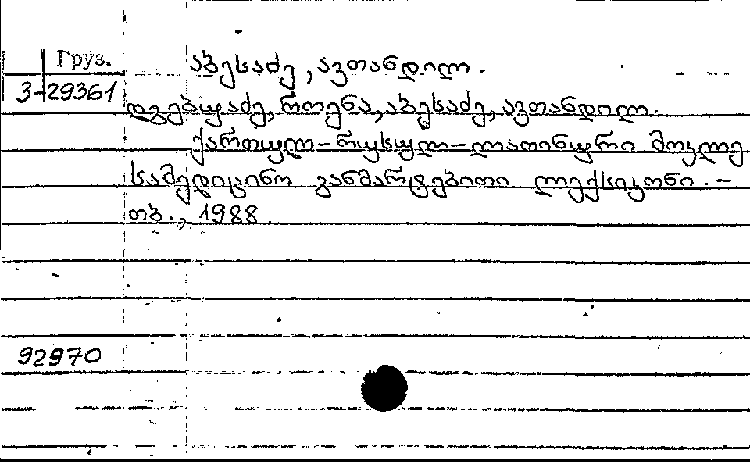 Груз.
აბესაძე, ავთანდილ.
3-29361
დგებუაძე, როენა, აბესაძე, ავთანდილ.
ქართულ-რუსულ-ლათინური მოკლე
სამედიცინო განმარტებითი ლექსიკონი.-
თბ., 1988.
92970